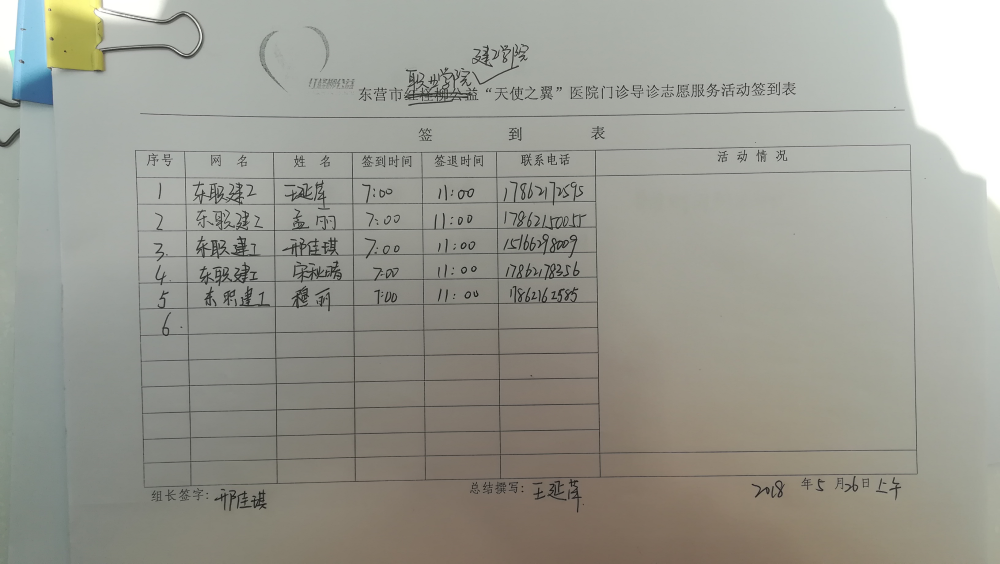 建学院
职业学院
东营市红柽柳公益“天使之翼”医院门诊导诊志愿服务活动签到表
签 到 表
序号 网 名 姓 名 签到时间 签退时间 联系电话 活动情况
1 东职建工 王延萍 7:00 11:00 17862172595
2 东职建工 孟丽 7:00 11:00 17862150055
3. 东职建工 邢佳琪 7:00 11:00 15166298009
4. 东职建工 宋秋晴 7:00 11:00 17862178356
5 东职建工 穆丽 7:00 11:00 17862162585
6.
组长签字: 邢佳琪 总结撰写: 王延萍 2018 年 5 月 26 日上午